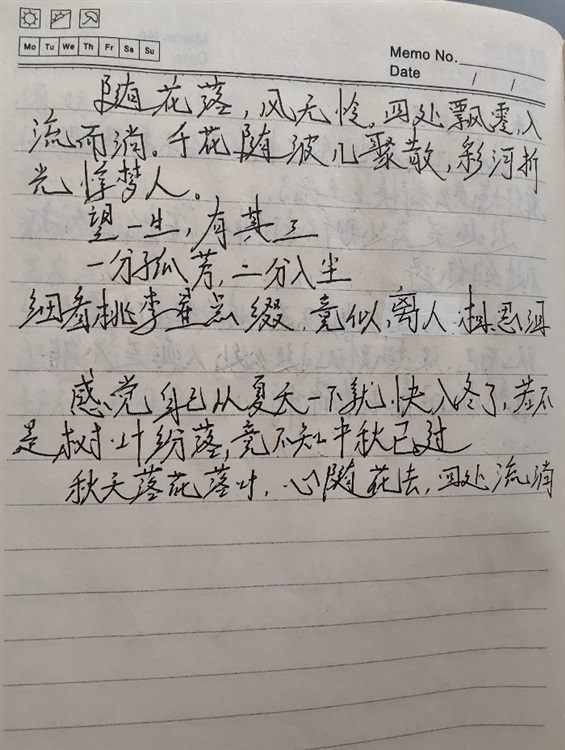 Mo Tu We Th Fr Sa Su
Memo No.
Date / /
随花落，风无怜。四处飘零入
流而淌。千花随波几聚散，彩河折
光 梦人。
望一生，有其三
一分孤芳，二分入尘
细看桃李 点缀，竟似离人相思泪
感觉自己从夏天一下就快入冬了，若不
是树叶纷落，竟不知中秋已过
秋天落花落叶，心随花去，四处流淌